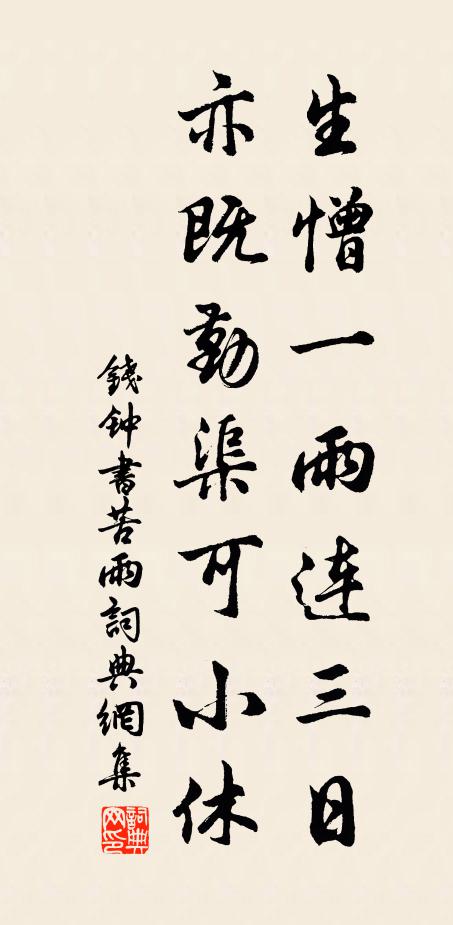 生憎一雨连三日
亦既勤渠可小休
錢钟書苦雨詞典網集
詞典
网印